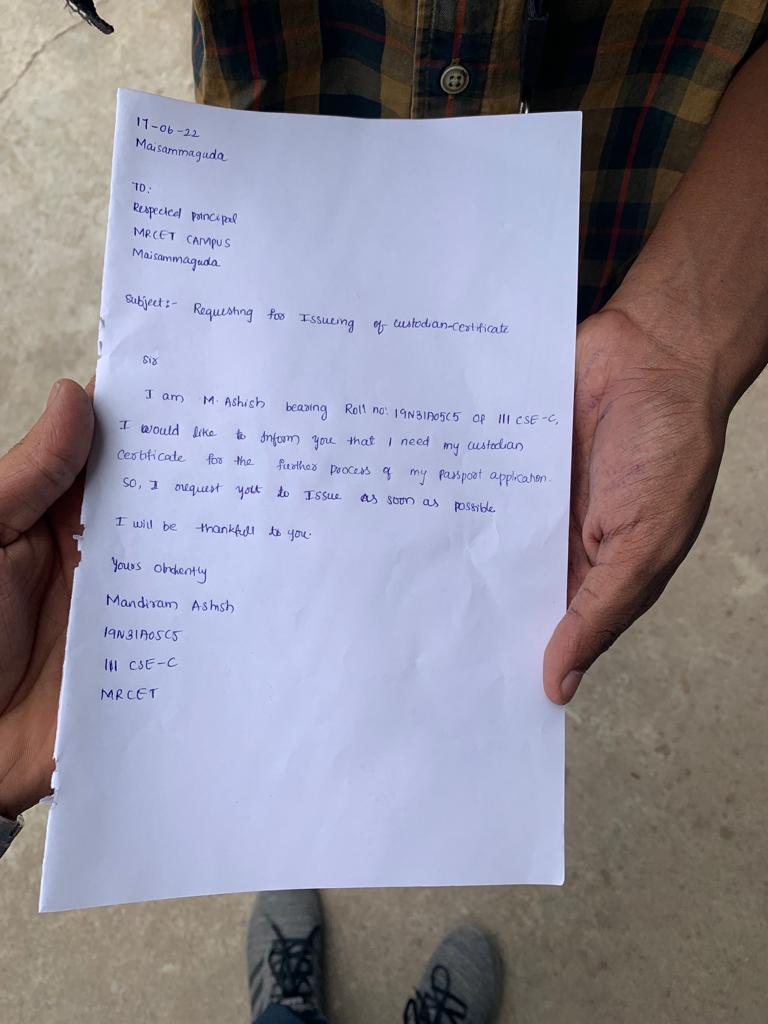 17-06-22
Maisammaguda
TO:
Respected principal
MRCET CAMPUS
Maisammaguda
Subject:- Requesting for Issueing of custodian-certificate
Sir
I am M. Ashish bearing Roll no: 19N31A05C5 OF III CSE-C,
I would like to Inform you that I need my custodian
certificate for the further process of my passport application.
SO, I request you to Issue as soon as possible
I will be thankfull to you.
Yours Obidently
Mandiram Ashish
19N31A05C5
III CSE-C
MRCET